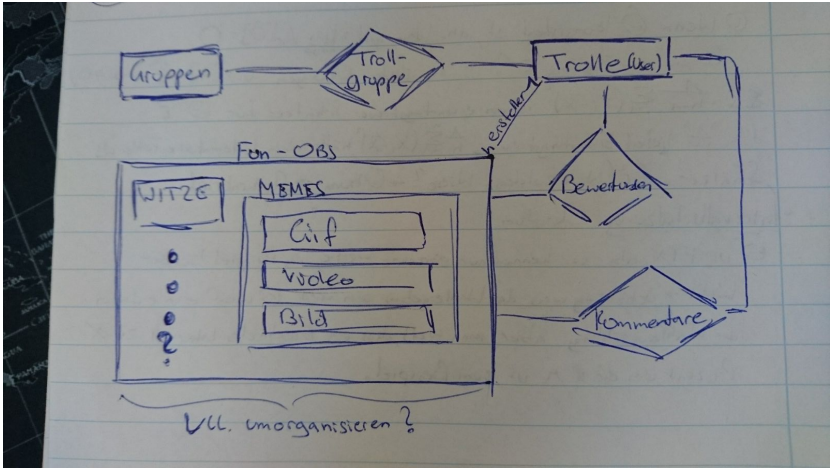 Gruppen
Troll-
gruppe
Trolle (User)
herstellen
Fun-OBS
WITZE
MEMES
Gif
Video
Bild
?
Bewerten
Kommentare
Vll. umorganisieren?